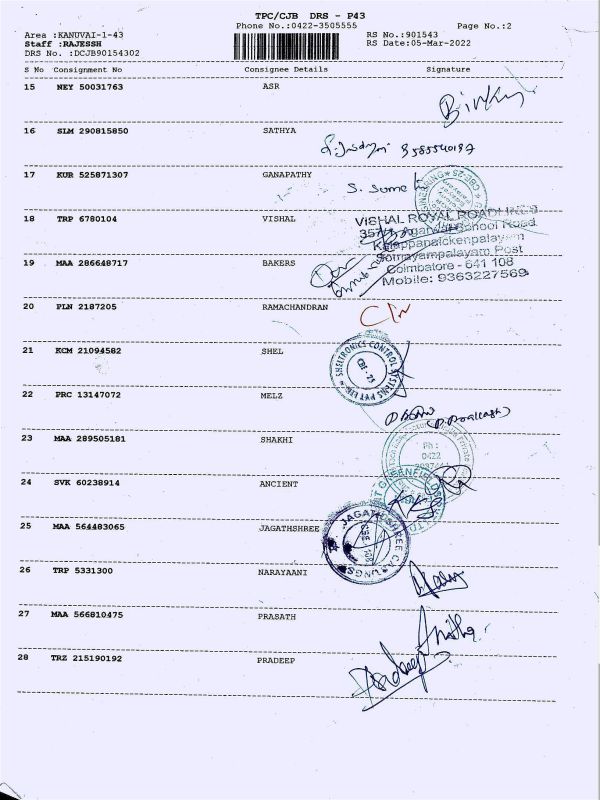 TPC/CJB DRS - P43
Phone No.:0422-3505555
Page No.:2
Area :KANUVAI-1-43
Staff :RAJESSH
DRS No. :DCJB90154302
RS No.:901543
RS Date:05-Mar-2022
S No Consignment No Consignee Details Signature
15 NEY 50031763 ASR
16 SLM 290815850 SATHYA
9585540197
17 KUR 525871307 GANAPATHY
S. Suma
18 TRP 6780104 VISHAL
VISHAL ROYAL ROADLINES
School Road
Kalappanaickenpalayam
Somayampalayam Post
Coimbatore - 641 108
Mobile: 9363227569
19 MAA 286648717 BAKERS
20 PLN 2187205 RAMACHANDRAN
21 KCM 21094582 SHEL
SHELTRONICS CONTROL SYSTEMS PVT LTD
CBE - 25
22 PRC 13147072 MELZ
23 MAA 289505181 SHAKHI
Ph :
0422
24 SVK 60238914 ANCIENT
GREENFIELD
25 MAA 564483065 JAGATHSHREE
JAGATHSHREE
26 TRP 5331300 NARAYAANI
27 MAA 566810475 PRASATH
28 TRZ 215190192 PRADEEP
Pradeep